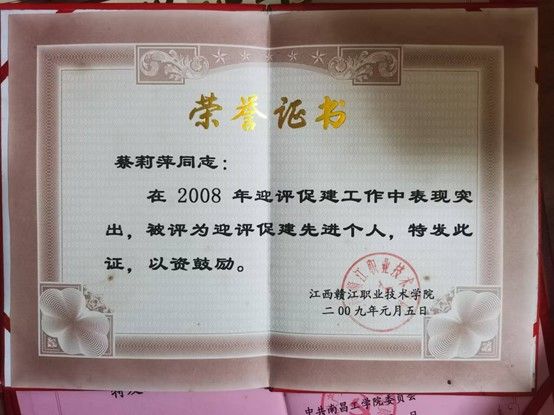 荣誉证书
蔡莉萍同志：
在 2008 年迎评促建工作中表现突
出，被评为迎评促建先进个人，特发此
证，以资鼓励。
江西赣江职业技术学院
二00九年元月五日
中共南昌工学院委员会